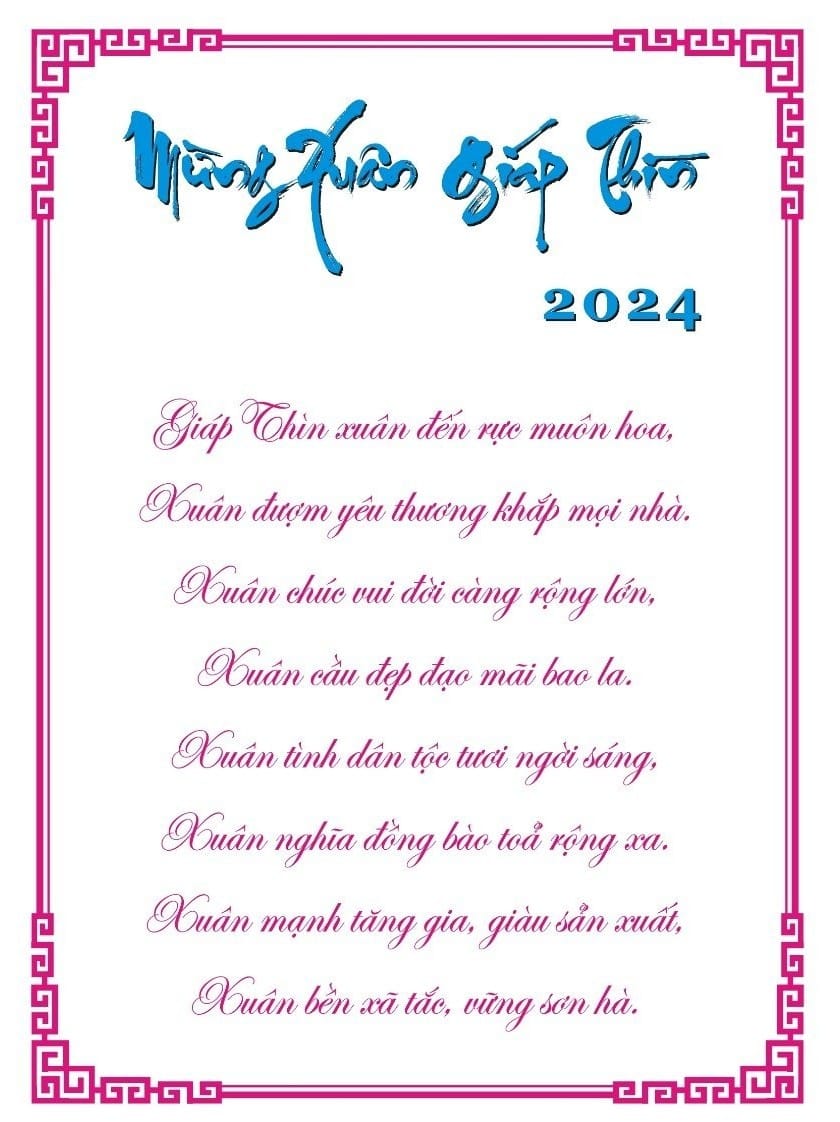 Mừng Xuân Giáp Thìn
2024
Giáp Thìn xuân đến rực muôn hoa,
Xuân đượm yêu thương khắp mọi nhà.
Xuân chúc vui đời càng rộng lớn,
Xuân cầu đẹp đạo mãi bao la.
Xuân tình dân tộc tươi ngời sáng,
Xuân nghĩa đồng bào toả rộng xa.
Xuân mạnh tăng gia, giàu sản xuất,
Xuân bền xã tắc, vững sơn hà.